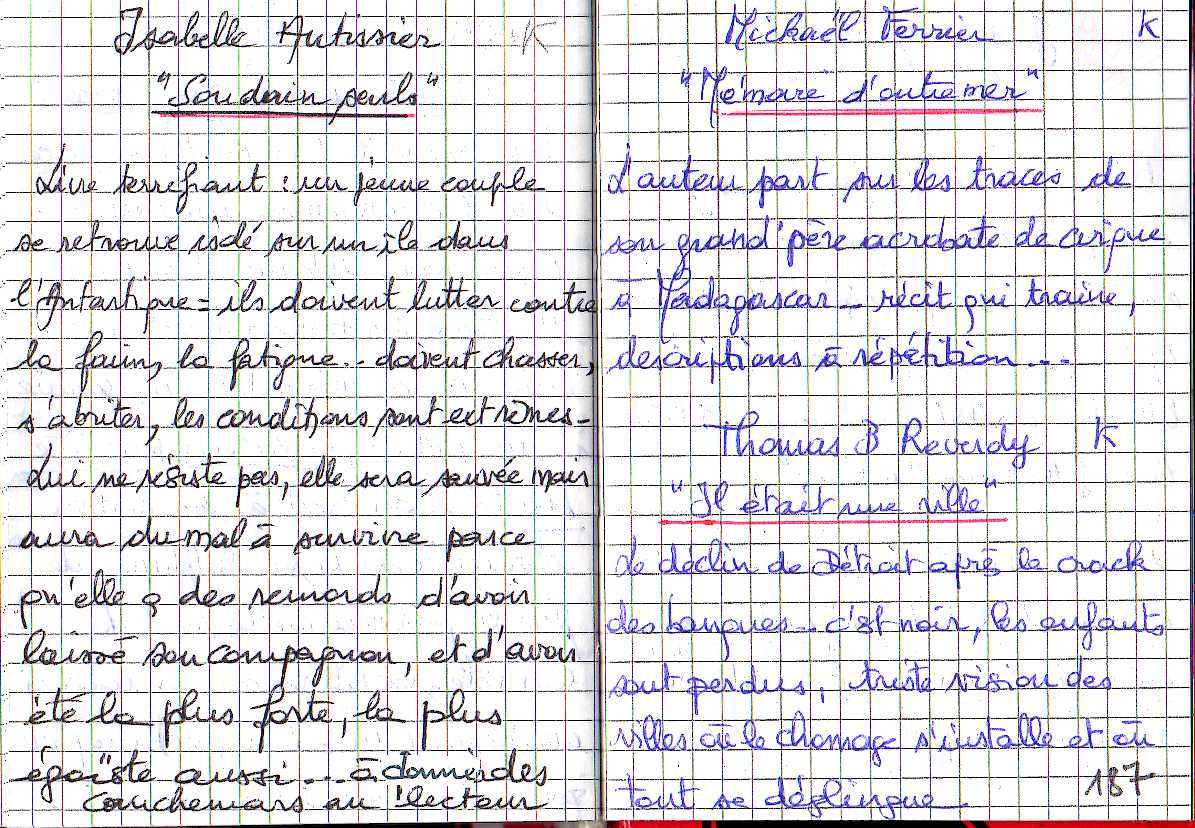 Isabelle Autissier K
"Soudain seuls"
Livre terrifiant : un jeune couple
se retrouve isolé sur un île dans
l'Antartique = ils doivent lutter contre
la faim, la fatigue.. doivent chasser,
s'abriter, les conditions sont extrêmes -
Lui ne résiste pas, elle sera sauvée mais
aura du mal à survivre parce
qu'elle a des remords d'avoir
laissé son compagnon, et d'avoir
été la plus forte, la plus
égoïste aussi ... à donner des
cauchemars au lecteur
Mickaël Ferrier K
"Mémoire d'outremer"
L'auteur part sur les traces de
son grand'père acrobate de cirque
à Madagascar - récit qui traine,
descriptions à répétition ...
Thomas B Reverdy K
"Il était une ville"
Le déclin de Détroit après le crack
des banques - c'est noir, les enfants
sont perdus, triste vision des
villes où le chomage s'installe et où
tout se déglingue.
187